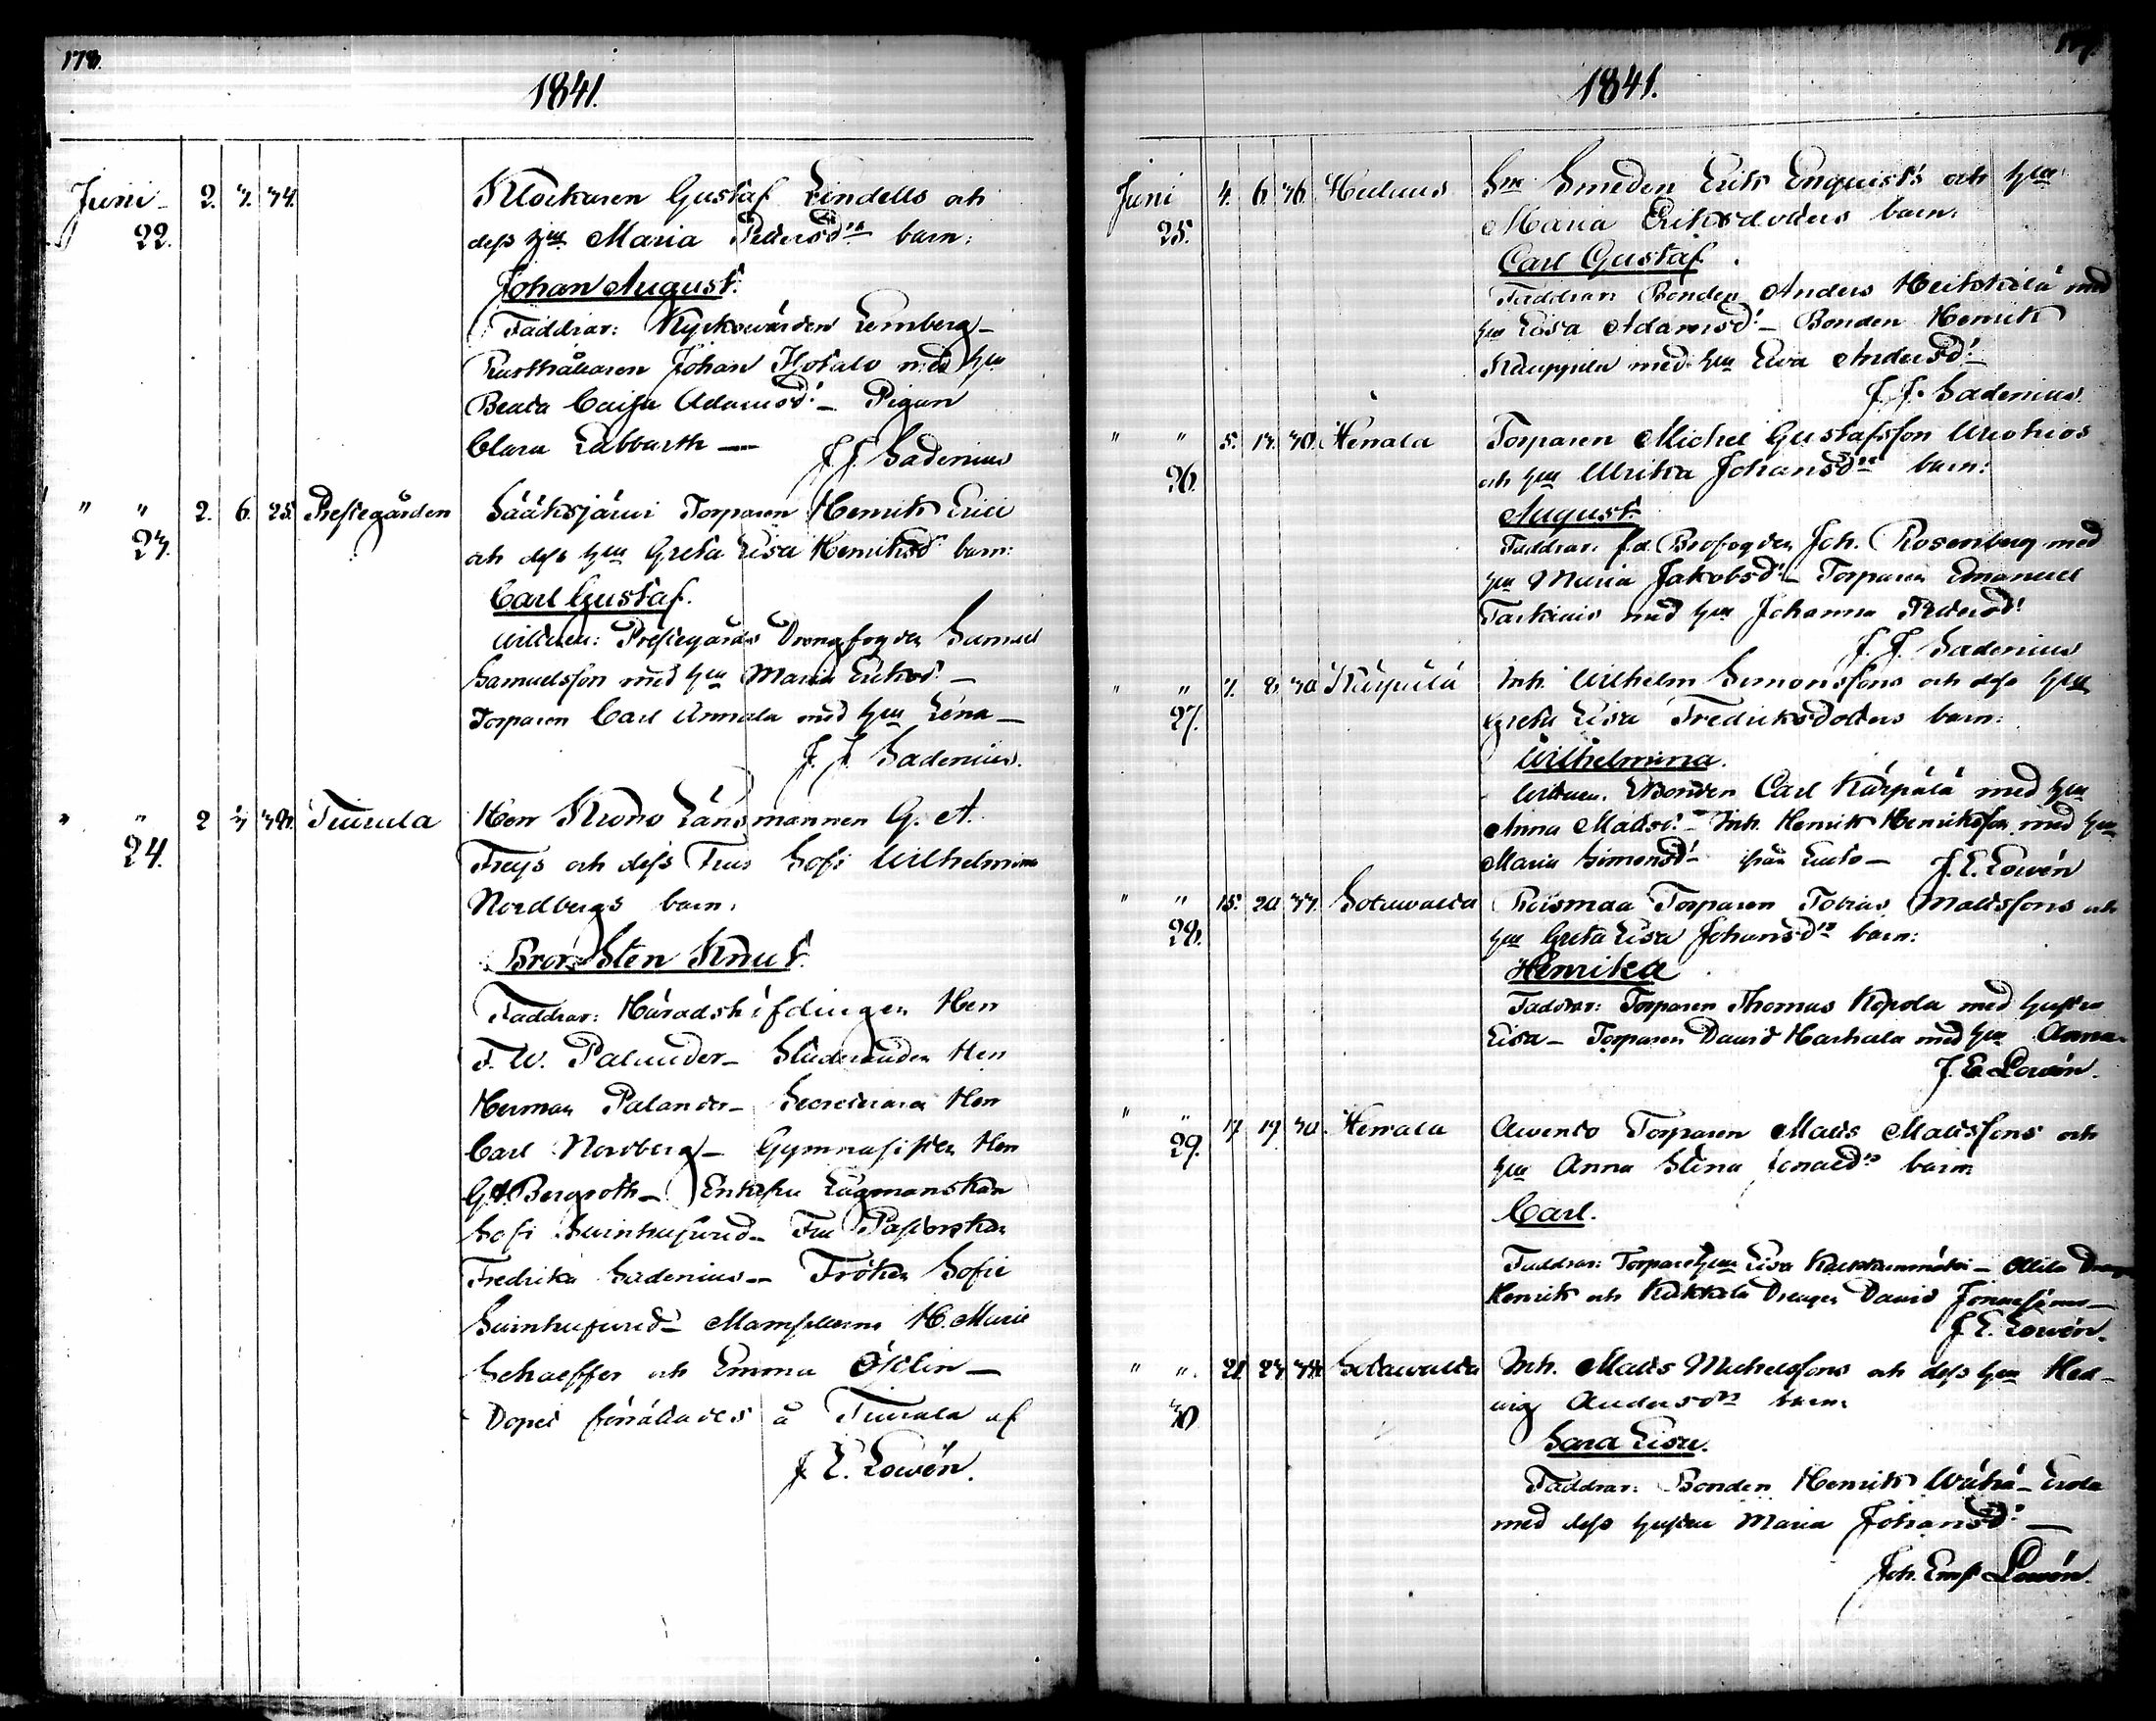 178.
1841.
Juni 2. 7. 34. Klockaren Gustaf Lindells och
22. dess hu Maria Pettersdrs barn:
Johan August.
Faddrar: Kyrkowärden Lemberg –
Rusthållaren Johan Hotalo med hu
Beata Caisa Adamsdr – Pigan
Clara Labbarth — J. J. Sadenius
" " 2. 6. 25. Prestegården Sääksjärwi Torparen Henrik Erici
23. och dess hu Greta Lisa Henriksdr barn:
Carl Gustaf.
Wittnen: Prestegårds Drengfogden Samuel
Samuelsson med hu Maria Eriksdr –
Torparen Carl Annala med hu Lena –
J. J. Sadenius.
" " 2 3 39. Tiurula Herr Krono Länsmannen G. A.
24. Freys och dess Frus Sofi Wilhelmina
Nordbergs barn:
Bror Sten Knut.
Faddrar: Häradshöfdingen Herr
F. W. Palander – Studeranden Herr
Herman Palander – Secreteraren Herr
Carl Nordberg – Gymnasisten Herr
G A Bergroth – Enkefru Lagmanskan
Sofi Swinhufvud – Fru Pastorskan
Fredrika Sadenius – Fröken Sofie
Swinhufvud – Mamsellerna H. Marie
Schaeffer och Emma Öhlin –
Dopet förrättades å Tiurala af
J. E. Lowén.
1841.
Juni 4. 6. 36. Sm Smeden Erik Enquists och hu
25. Maria Eriksdotters barn:
Carl Gustaf.
Faddrar: Bonden Anders Heikkilä med
hu Lisa Adamsdr – Bonden Henrik
Kauppila med hu Eva Andersdr –
J. J. Sadenius.
" " 5. 13. 30. Henala Torparen Michel Gustafsson
26. och hu Ulrika Johansdrs barn:
August.
Faddrar: f.d. Brofogden Joh. Rosenberg med
hu Maria Jakobsdr – Torparen Emanuel
med hu Johanna Pettersdr
J. J. Sadenius
" " 7. 8. 30 Kärpälä Inh. Wilhelm Simonssons och dess hu
27. Greta Lisa Fredriksdotters barn:
Wilhelmina.
Wittnen. Bonden Carl Kärpälä med hu
Anna Matsdr – Inh. Henrik Henriksson med hu
Maria Simonsdr – ifrån – J. E. Lowén
" " 15. 20 37. Sotawalta Torparen Tobias Mattssons och
28. hu Greta Lisa Johansdrs barn:
Henrika.
Faddrar: Torparen Thomas med hustru
Lisa – Torparen David Harhala med hu Anna
J. E. Lowén.
" " 17 19 30. Henala Torparen Matts Mattssons och
29. hu Anna Stina barn
Carl.
Faddrar: Torpare hu Lisa – Ollila
Henrik och Kukkola Drengen David –
J. E. Lowén.
" " 21 23 34. Sotawalta Inh. Matts Michelssons och dess hu Hed-
30. wig Andersdrs barn:
Sara Lisa.
Faddrar: Bonden Henrik Wähä –
med dess hustru Maria Johansdr –
Joh. Ernst Lowén.